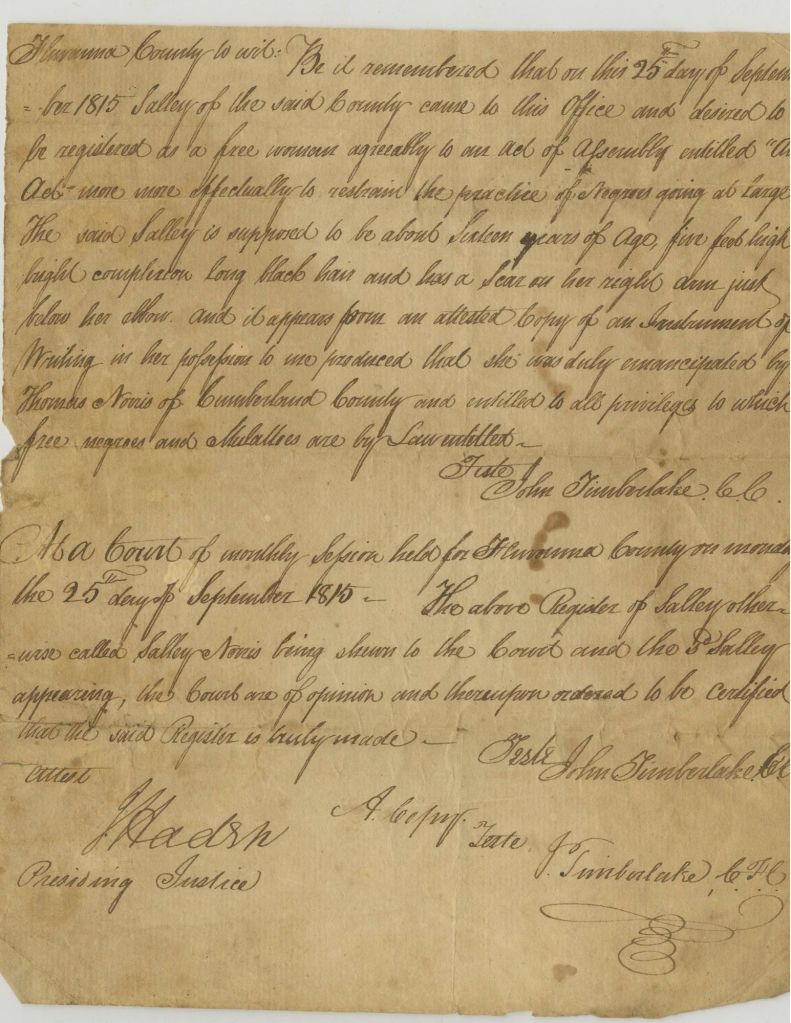 Fluvanna County to wit: Be it remembered that on this 25th day of Septem
= ber 1815 Salley of the said County came to this Office and desired to
be registered as a free woman agreeably to an Act of Assembly entitled "An
Act" more more effectually to restrain the practice of Negroes going at Large
The said Salley is supposed to be about Sixteen years of Age, five feet high
bright complexion long black hair and has a Scar on her right arm just
below her elbow. and it appears from an attested Copy of an Instrument of
Writing in her possession to me produced that she was duly emancipated by
Thomas Norris of Cumberland County and entitled to all privileges to which
free negroes and Mulattoes are by Law entitled ~
Teste
John Timberlake. C.C.
At a Court of monthly Session held for Fluvanna County on monday
the 25th day of September 1815 ~ The above Register of Salley other=
=wise called Salley Norris being shewn to the Court and the Sd Salley
appearing, the Court are of opinion and thereupon ordered to be certified
that the said Register is truly made ~
Teste John Timberlake CC
Attest
A Copy.
Teste
J. Timberlake C.F.C
Presiding Justice